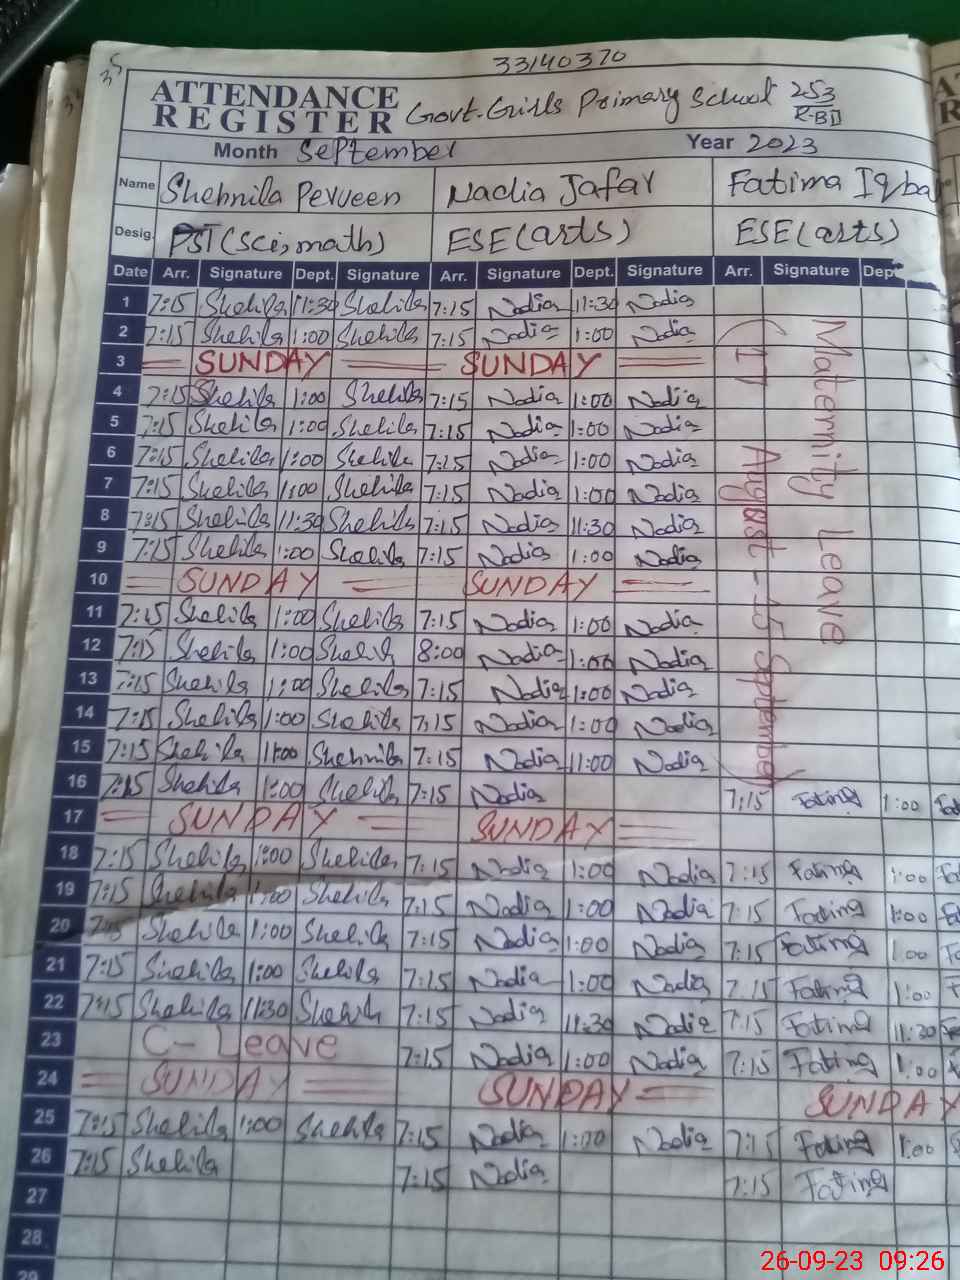 35
33140370
ATTENDANCE REGISTER Govt. Girls Primary School 253 R-B
Month September Year 2023
Name Shehnila Perveen Nadia Jafar Fatima Iqbal
Desig. PST (sci, math) ESE (arts) ESE (arts)
Date Arr. Signature Dept. Signature Arr. Signature Dept. Signature Arr. Signature Dept
1 7:15 Shehila 11:30 Shehila 7:15 Nadia 11:30 Nadia
2 7:15 Shehila 1:00 Shehila 7:15 Nadia 1:00 Nadia
3 SUNDAY SUNDAY
4 7:15 Shehila 1:00 Shehila 7:15 Nadia 1:00 Nadia
5 7:15 Shehila 1:00 Shehila 7:15 Nadia 1:00 Nadia
6 7:15 Shehila 1:00 Shehila 7:15 Nadia 1:00 Nadia
7 7:15 Shehila 1:00 Shehila 7:15 Nadia 1:00 Nadia
8 7:15 Shehila 11:30 Shehila 7:15 Nadia 11:30 Nadia
9 7:15 Shehila 1:00 Shehila 7:15 Nadia 1:00 Nadia
10 SUNDAY SUNDAY
11 7:15 Shehila 1:00 Shehila 7:15 Nadia 1:00 Nadia
12 7:15 Shehila 1:00 Shehila 8:00 Nadia 1:00 Nadia
13 7:15 Shehila 1:00 Shehila 7:15 Nadia 1:00 Nadia
14 7:15 Shehila 1:00 Shehila 7:15 Nadia 1:00 Nadia
15 7:15 Shehila 11:00 Shehnila 7:15 Nadia 11:00 Nadia
Maternity Leave
(17 August - 15 September)
16 7:15 Shehila 1:00 Shehila 7:15 Nadia 7:15 Fatima 1:00
17 SUNDAY SUNDAY
18 7:15 Shehila 1:00 Shehila 7:15 Nadia 1:00 Nadia 7:15 Fatima 1:00
19 7:15 Shehila 1:00 Shehila 7:15 Nadia 1:00 Nadia 7:15 Fatima 1:00
20 7:15 Shehila 1:00 Shehila 7:15 Nadia 1:00 Nadia 7:15 Fatima 1:00
21 7:15 Shehila 1:00 Shehila 7:15 Nadia 1:00 Nadia 7:15 Fatima 1:00
22 7:15 Shehila 11:30 Shehila 7:15 Nadia 11:30 Nadia 7:15 Fatima 11:30
23 C- Leave 7:15 Nadia 1:00 Nadia 7:15 Fatima 1:00
24 SUNDAY SUNDAY SUNDAY
25 7:15 Shehila 1:00 Shehila 7:15 Nadia 1:00 Nadia 7:15 Fatima 1:00
26 7:15 Shehila 7:15 Nadia 7:15 Fatima
27
28
29
26-09-23 09:26